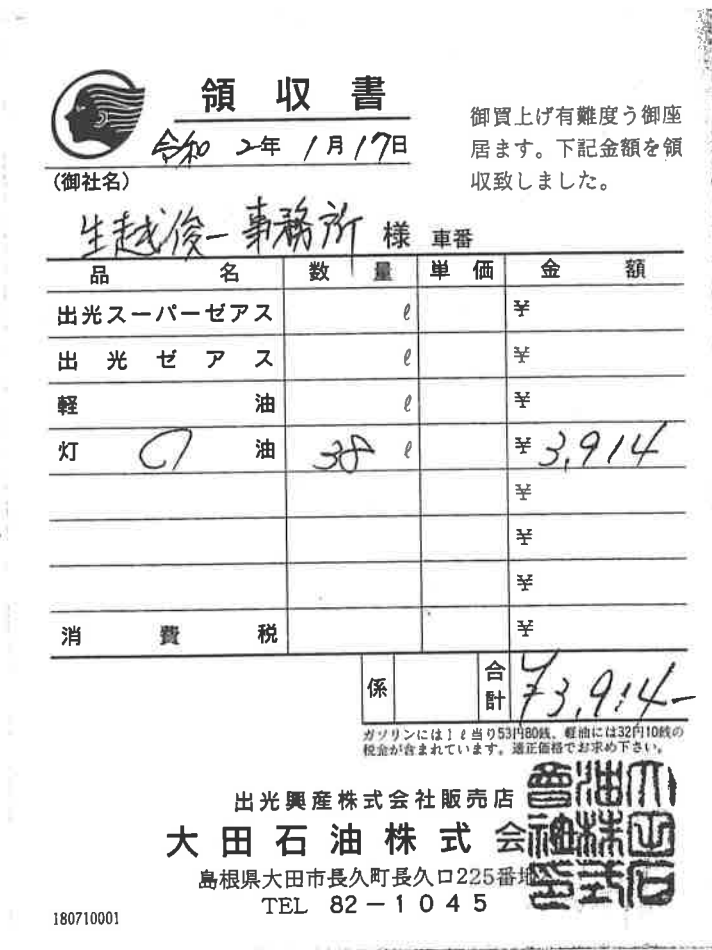 領収書
令和2年1月17日
御買上げ有難度う御座
居ます。下記金額を領
収致しました。
(御社名)
生越俊一事務所 様 車番
品名 数量 単価 金額
出光スーパーゼアス ℓ ¥
出光ゼアス ℓ ¥
軽油 ℓ ¥
灯油 38 ℓ ¥3,914
¥
¥
¥
消費税 ¥
係 合計 ¥3,914-
ガソリンには1ℓ当り53円80銭、軽油には32円10銭の
税金が含まれています。適正価格でお求め下さい。
出光興産株式会社販売店
大田石油株式会
島根県大田市長久町長久口225番地
TEL 82-1045
大田石油株式会社印
180710001